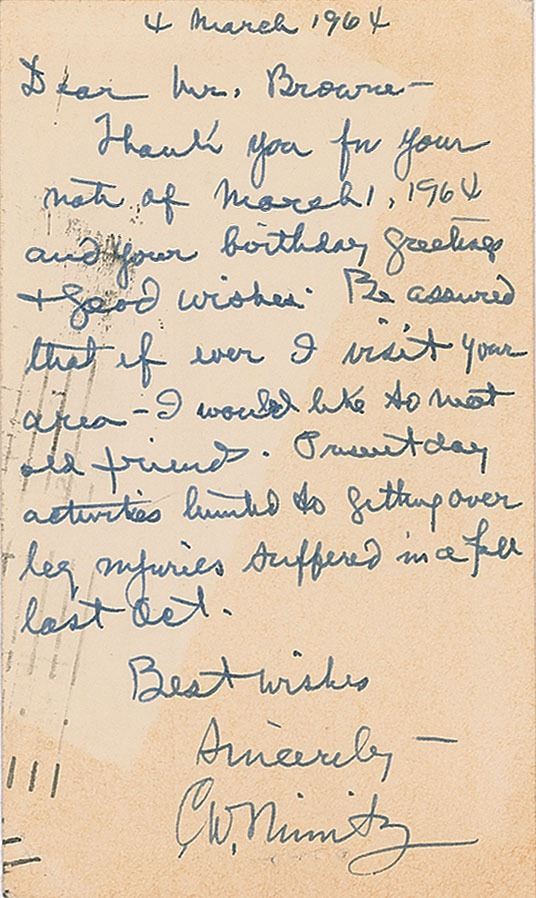 4 March 1964
Dear Mr. Browne —
Thank you for your
note of March 1, 1964
and your birthday greetings
+ good wishes. Be assured
that if ever I visit your
area - I would like to meet
old friends. Present day
activities limited to getting over
leg injuries suffered in a fall
last Oct.
Best wishes
Sincerely —
C.W. Nimitz